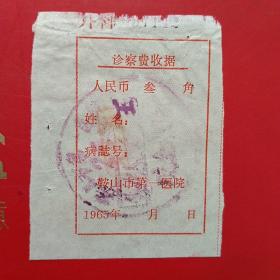 外科
诊察费收据
人民币 叁 角
姓 名：
病誌号：
鞍山市第一医院
1965年 月 日